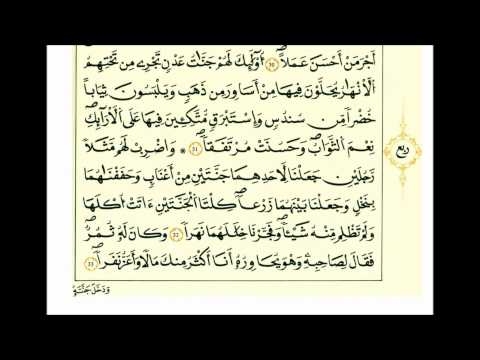 أَجْرَ مَنْ أَحْسَنَ عَمَلاً ۝30 أُوْلَٰٓئِكَ لَهُمْ جَنَّٰتُ عَدْنٍ تَجْرِے مِن تَحْتِهِمُ
اُ۬لَانْهَٰرُ يُحَلَّوْنَ فِيهَا مِنْ أَسَاوِرَ مِن ذَهَبٍ وَيَلْبَسُونَ ثِيَاباً
خُضْراً مِّن سُندُسٍ وَإِسْتَبْرَقٍ مُّتَّكِـِٕينَ فِيهَا عَلَى اَ۬لَارَآئِكِ
نِعْمَ اَ۬لثَّوَابُ وَحَسُنَتْ مُرْتَفَقاً ۝31 * وَاضْرِبْ لَهُم مَّثَلاً
رَّجُلَيْنِ جَعَلْنَا لِأَحَدِهِمَا جَنَّتَيْنِ مِنْ أَعْنَٰبٍ وَحَفَفْنَٰهُمَا
بِنَخْلٍ وَجَعَلْنَا بَيْنَهُمَا زَرْعاً كِلْتَا اَ۬لْجَنَّتَيْنِ ءَاتَتُ ا۟كْلَهَا
وَلَمْ تَظْلِم مِّنْهُ شَيْـٔاً وَفَجَّرْنَا خِلَٰلَهُمَا نَهَراً ۝32 وَكَانَ لَهُۥ ثُمُرٌ
فَقَالَ لِصَٰحِبِهِۦ وَهُوَ يُحَاوِرُهُۥٓ أَنَآ أَكْثَرُ مِنكَ مَالاً وَأَعَزُّ نَفَراً ۝33
ربع
وَدَخَلَ جَنَّتَهُۥ